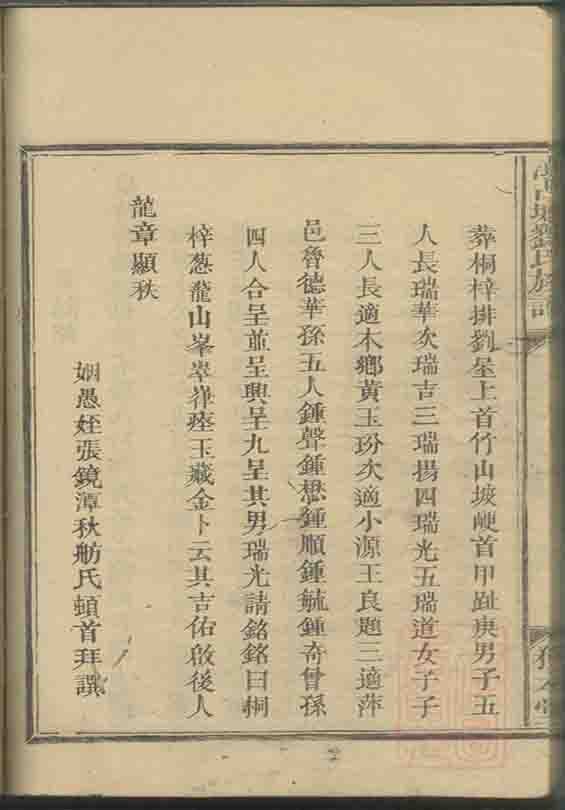 劉氏族譜
葬桐梓排劉屋上首竹山坡崆首甲趾庚男子五
人長瑞華次瑞吉三瑞揚四瑞光五瑞道女子子
三人長適木鄉黃玉玢次適小源王良題三適萍
邑魯德華孫五人鍾聲鍾懋鍾順鍾毓鍾奇曾孫
四人合呈並呈興呈九呈其男瑞光請銘銘曰桐
梓葱蘢山峯崒嵂瘞玉藏金卜云其吉佑啟後人
龍章顯秩
姻愚姪張鏡潭秋舫氏頓首拜譔